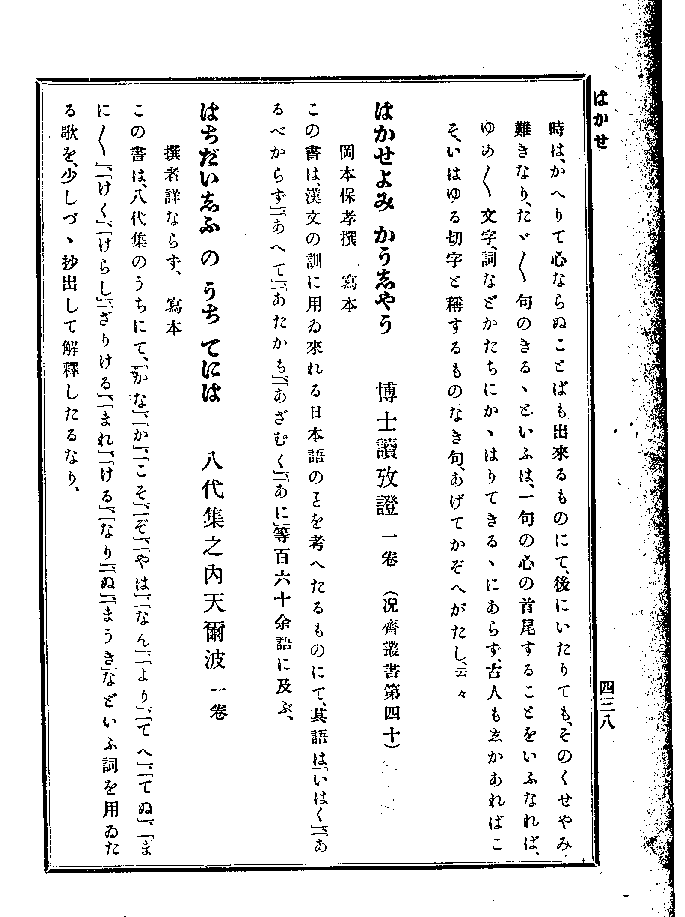 はかせ
四三八
時は、かへりて心ならぬことばも出來るものにて、後にいたりても、そのくせやみ
難きなり、たゞ〱句のきるゝといふは、一句の心の首尾することをいふなれば、
ゆめ〱文字、詞などかたちにかゝはりてきるゝにあらず、古人も志かあればこ
そ、いはゆる切字と稱するものなき句、あげてかぞへがたし、云々
はかせよみ かう志やう 博士讀攷證 一卷 (況齊叢書第四十)
岡本保孝撰 寫本
この書は、漢文の訓に用ゐ來れる日本語のことを考へたるものにて、其語は「いはく」「あ
るべからず」「あへて」「あたかも」「あざむく」「あに」等百六十余語に及ぶ、
はちだい志ふ の うち てには 八代集之內天爾波 一卷
撰者詳ならず、 寫本
この書は、八代集のうちにて、「かな」「か」「こそ」「ぞ」「やは」「なん」「より」「てへ」「てぬ」「ま
に〱」「けく」「けらし」「ざりける」「まれ」「ける」「なり」「ぬ」「まうき」などいふ詞を用ゐた
る歌を、少しづゝ抄出して解釋したるなり、